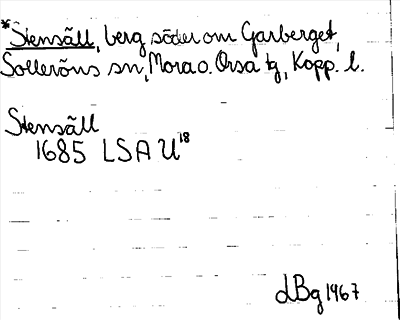 *Stensäll, berg söder om Garberget,
Solleröns sn, Mora o. Orsa tg, Kopp. l.
Stensäll
1685 LSA U18
dBg 1967